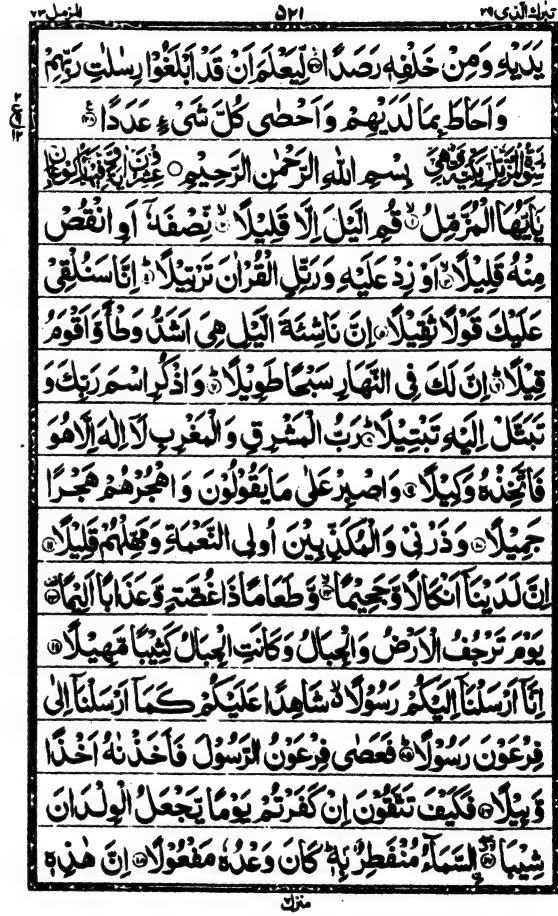 تبرك الذی ٢٩ ٥٢١ المزمل ٧٣
يَدَيْهِ وَمِنْ خَلْفِهٖ رَصَدًا ﴿٢٧﴾ لِّيَعْلَمَ اَنْ قَدْ اَبْلَغُوْا رِسٰلٰتِ رَبِّهِمْ
وَاَحَاطَ بِمَا لَدَيْهِمْ وَاَحْصٰى كُلَّ شَىْءٍ عَدَدًا ﴿٢٨﴾
بِسْمِ اللهِ الرَّحْمٰنِ الرَّحِيْمِ
يٰۤاَيُّهَا الْمُزَّمِّلُ ﴿١﴾ قُمِ الَّيْلَ اِلَّا قَلِيْلًا ﴿٢﴾ نِّصْفَهٗۤ اَوِ انْقُصْ
مِنْهُ قَلِيْلًا ﴿٣﴾ اَوْ زِدْ عَلَيْهِ وَرَتِّلِ الْقُرْاٰنَ تَرْتِيْلًا ﴿٤﴾ اِنَّا سَنُلْقِىْ
عَلَيْكَ قَوْلًا ثَقِيْلًا ﴿٥﴾ اِنَّ نَاشِئَةَ الَّيْلِ هِىَ اَشَدُّ وَطْاً وَّاَقْوَمُ
قِيْلًا ﴿٦﴾ اِنَّ لَكَ فِى النَّهَارِ سَبْحًا طَوِيْلًا ﴿٧﴾ وَاذْكُرِ اسْمَ رَبِّكَ وَ
تَبَتَّلْ اِلَيْهِ تَبْتِيْلًا ﴿٨﴾ رَبُّ الْمَشْرِقِ وَالْمَغْرِبِ لَاۤ اِلٰهَ اِلَّا هُوَ
فَاتَّخِذْهُ وَكِيْلًا ﴿٩﴾ وَاصْبِرْ عَلٰى مَا يَقُوْلُوْنَ وَاهْجُرْهُمْ هَجْرًا
جَمِيْلًا ﴿١٠﴾ وَذَرْنِىْ وَالْمُكَذِّبِيْنَ اُولِى النَّعْمَةِ وَمَهِّلْهُمْ قَلِيْلًا ﴿١١﴾
اِنَّ لَدَيْنَاۤ اَنْكَالًا وَّجَحِيْمًا ﴿١٢﴾ وَّطَعَامًا ذَا غُصَّةٍ وَّعَذَابًا اَلِيْمًا ﴿١٣﴾
يَوْمَ تَرْجُفُ الْاَرْضُ وَالْجِبَالُ وَكَانَتِ الْجِبَالُ كَثِيْبًا مَّهِيْلًا ﴿١٤﴾
اِنَّاۤ اَرْسَلْنَاۤ اِلَيْكُمْ رَسُوْلًا شَاهِدًا عَلَيْكُمْ كَمَاۤ اَرْسَلْنَاۤ اِلٰى
فِرْعَوْنَ رَسُوْلًا ﴿١٥﴾ فَعَصٰى فِرْعَوْنُ الرَّسُوْلَ فَاَخَذْنٰهُ اَخْذًا
وَّبِيْلًا ﴿١٦﴾ فَكَيْفَ تَتَّقُوْنَ اِنْ كَفَرْتُمْ يَوْمًا يَّجْعَلُ الْوِلْدَانَ
شِيْبًا ﴿١٧﴾ السَّمَآءُ مُنْفَطِرٌۢ بِهٖ كَانَ وَعْدُهٗ مَفْعُوْلًا ﴿١٨﴾ اِنَّ هٰذِهٖ
منزل